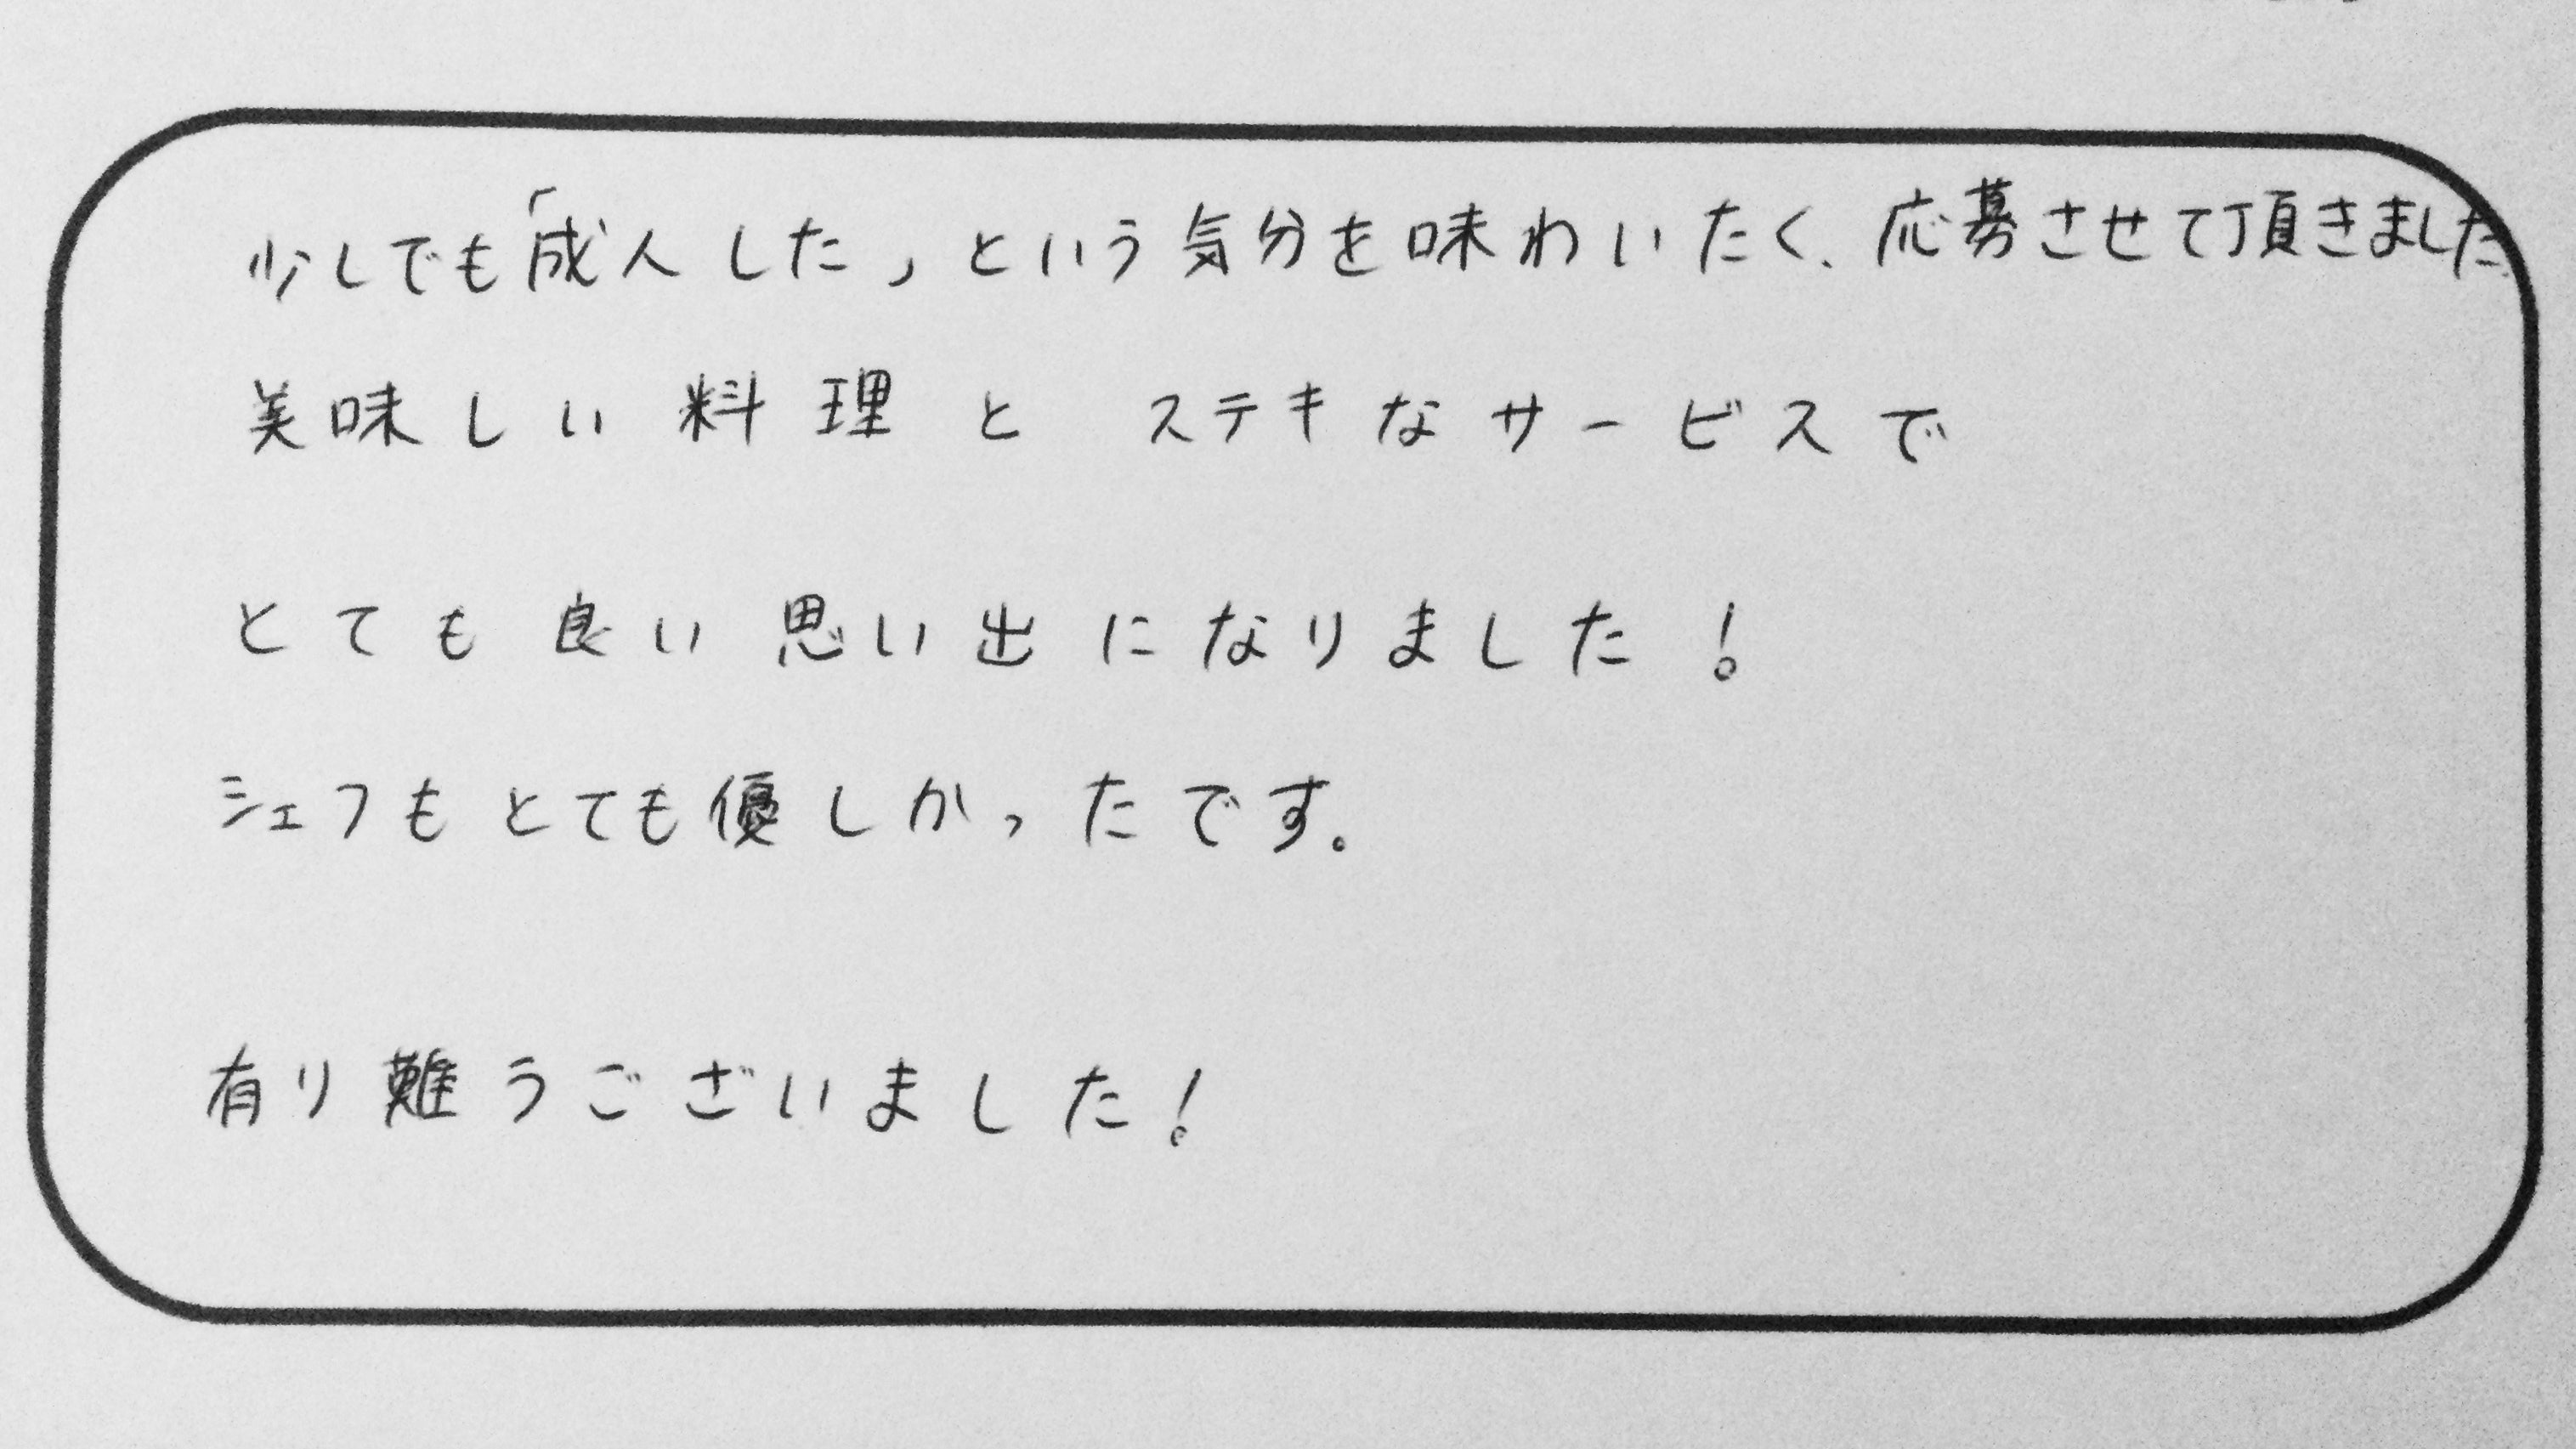 少しでも「成人した」という気分を味わいたく、応募させて頂きました。
美味しい料理とステキなサービスで
とても良い思い出になりました!
シェフもとても優しかったです。
有り難うございました!